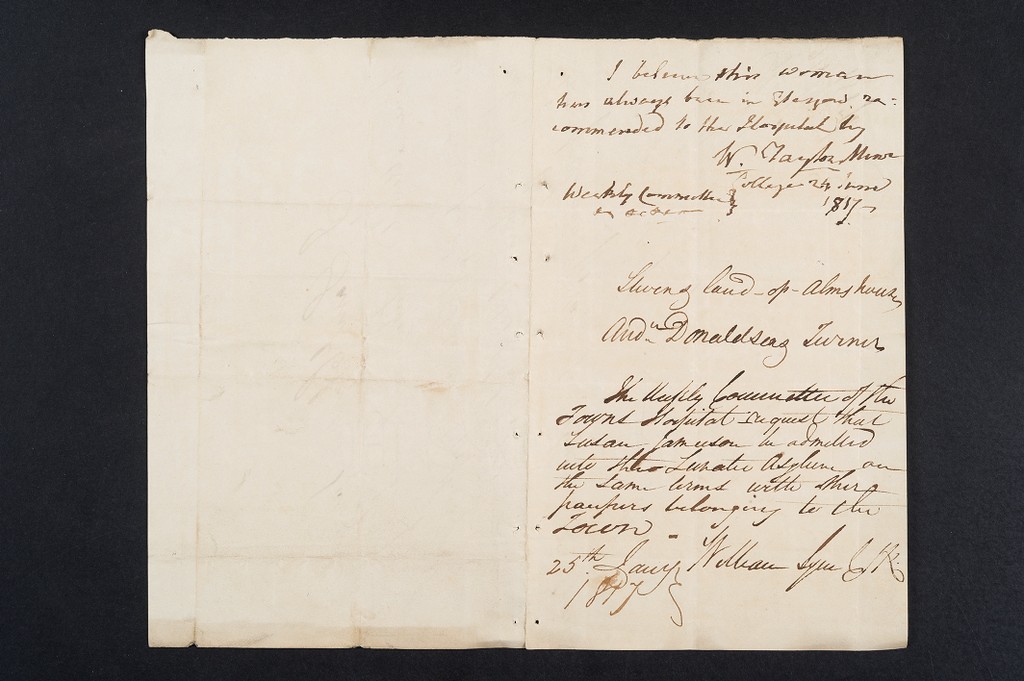 I believe this woman
has always been in Glasgow. re-
commended to the Hospital by
W. Taylor Minr
College 24 June
Weekly Committee
1817
land - op - Alms house
And.w Donaldson Turner
The Weekly Committee of the
Towns Hospital request that
Susan Jameson be admitted
into the Lunatic Asylum on
the same terms with other
paupers belonging to the
Town
25th Jany William Lym Clk.
1817